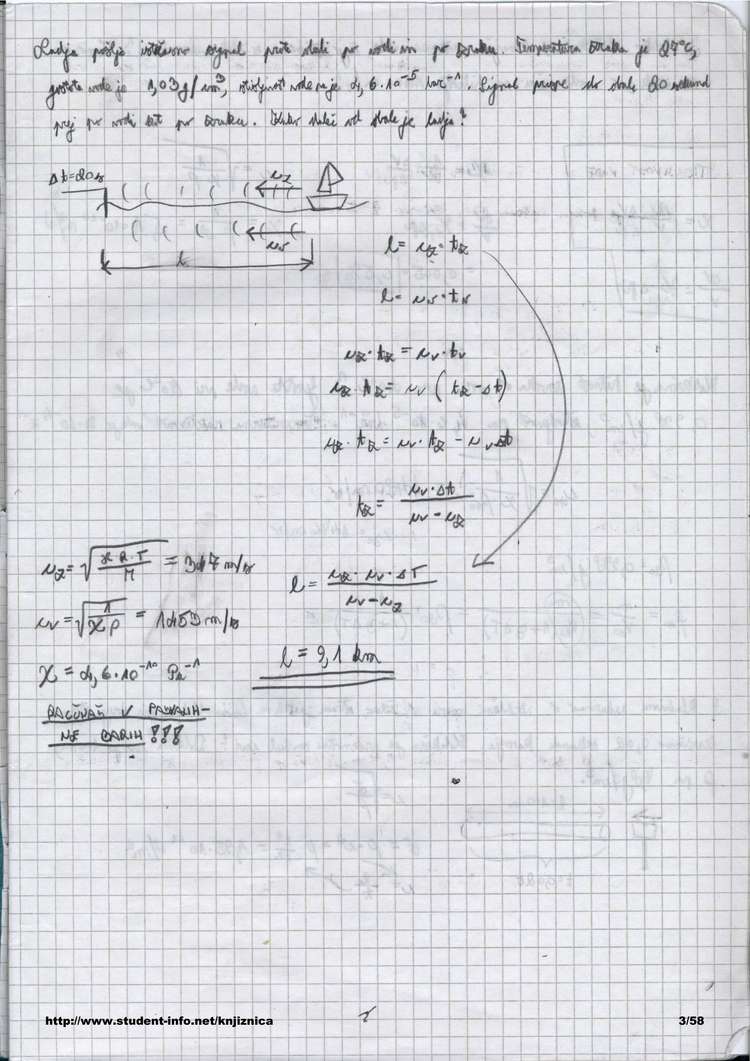 Ladja pošlje istočasno signal proti obali po vodi in po zraku. Temperatura zraka je 27°C,
gostota vode je 1,03 g/cm³, stisljivost vode pa je 4,6·10⁻⁵ bar⁻¹. Signal prispe do obale 20 sekund
prej po vodi kot po zraku. Koliko daleč od obale je ladja?
Δt=20s
l
l = v_z · t_z
l = v_v · t_v
v_z · t_z = v_v · t_v
v_z · t_z = v_v (t_z - Δt)
v_z · t_z = v_v · t_z - v_v Δt
t_z = v_v · Δt / (v_v - v_z)
v_z = √(ϰ·R·T / M) = 347 m/s
l = v_z · v_v · ΔT / (v_v - v_z)
v_v = √(1 / χρ) = 1453 m/s
χ = 4,6·10⁻¹⁰ Pa⁻¹
l = 9,1 km
RAČUNAŠ V PASCALIH-
NE BARIH!!!
http://www.student-info.net/knjiznica
3/58